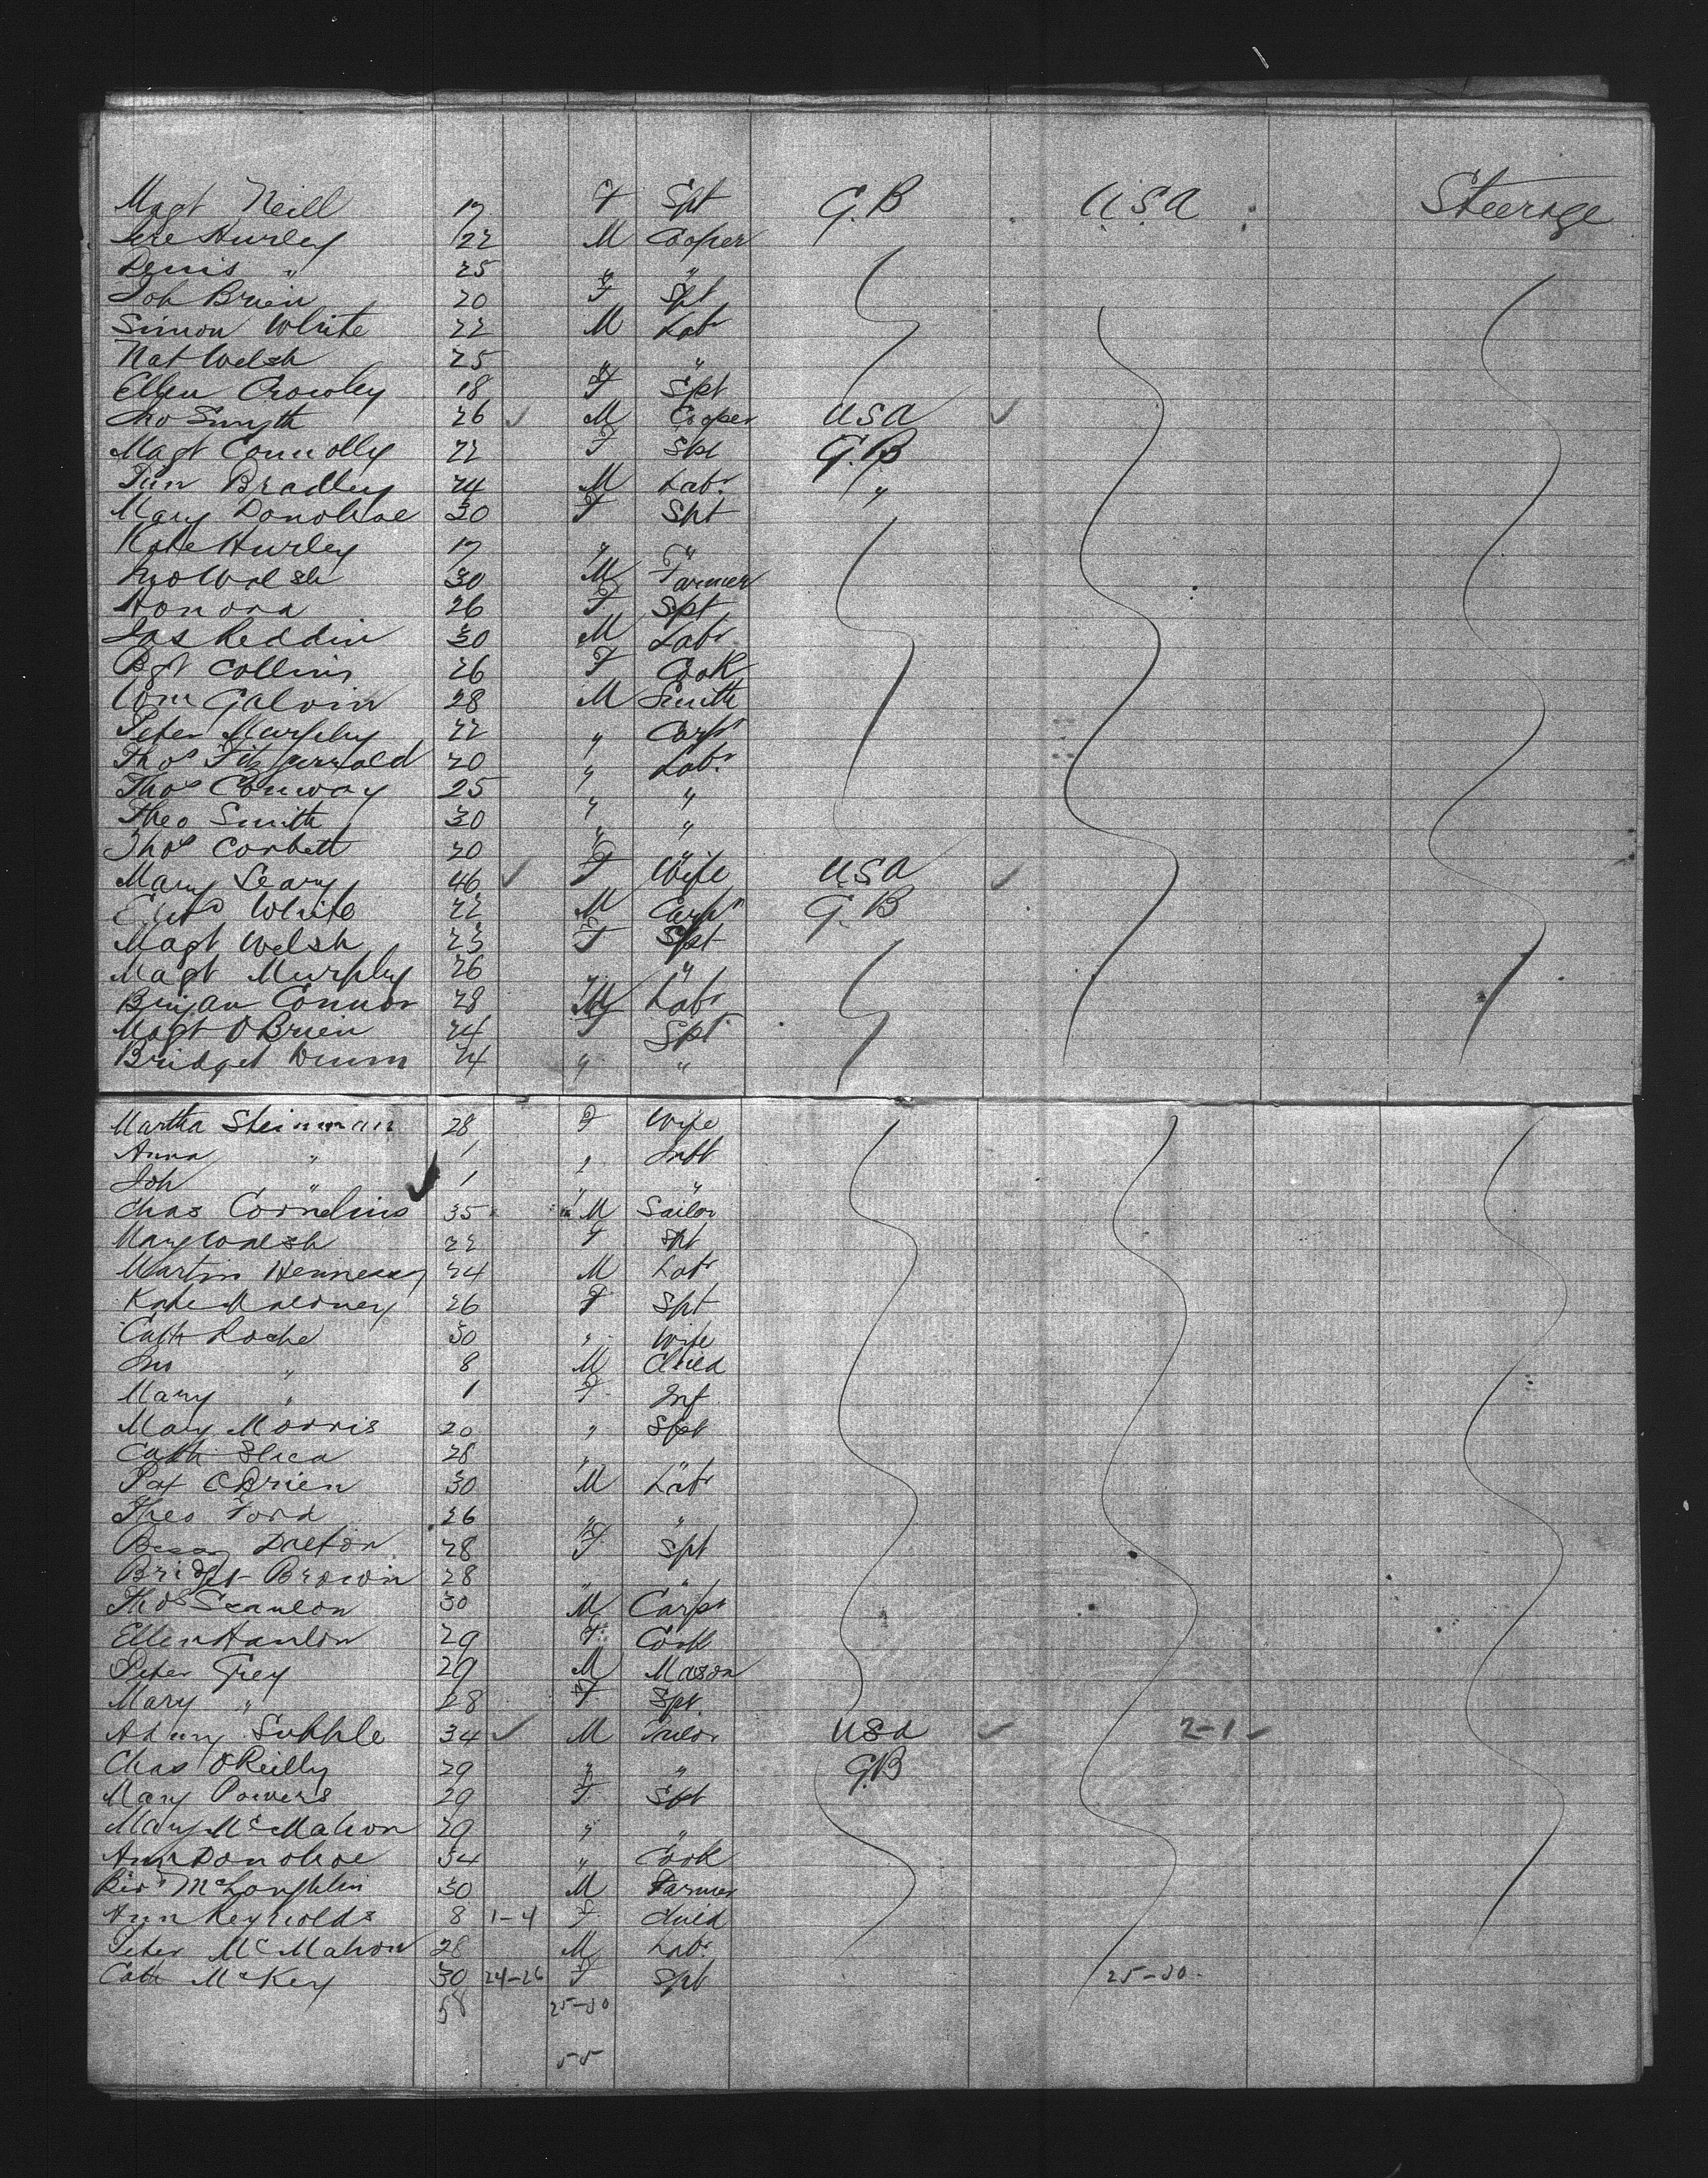 Magt Neill 17 F Spt G.B U.S.A Steerage
Jere Hurley 22 M Cooper
Denis " 25 " "
Joh Brien 20 F Spt
Simon White 22 M Labr
Nat Welsh 25 " "
Ellen Crowley 18 F Spt
Jno Smyth 26 ✓ M Cooper USA ✓
Magt Connolly 22 F Spt G.B
Tim Bradley 24 M Labr "
Mary Donohoe 30 F Spt
Kate Hurley 17 " "
Jno Walsh 30 M Farmer
Honora 26 F Spt
Jas Reddin 30 M Labr
Bgt Collins 26 F Cook
Wm Galvin 28 M Smith
Peter Murphy 22 " Carpr
Thos Fitzgerrald 20 " Labr
Thos Conway 25 " "
Theo Smith 30 " "
Thos Corbett 20 " "
Mary Leary 46 ✓ F Wife USA ✓
Edwd White 22 M Carpr G.B
Magt Welsh 23 F Spt
Magt Murphy 26 " "
Bryan Connor 28 M Labr
Magt OBrien 24 F Spt
Bridget 24 " "
Martha Steinman 28 F Wife
Anna " 1 " Inft
Joh " ✓ 1 " "
Chas Cornelius 35 M Sailor
Mary Walsh 22 F Spt
Martin Hennessy 24 M Labr
Kate Maloney 26 F Spt
Cath Roche 30 " Wife
Jno " 8 M Child
Mary " 1 F Inf
Mary Morris 20 " Spt
Cath Shea 28 " "
Pat OBrien 30 M Labr
Theo Ford 26 " "
Bessy Dalton 28 F Spt
Bridget Brown 28 " "
Thos Scanlon 30 M Carpr
Ellen Hanlon 29 F Cook
Peter Grey 29 M Mason
Mary " 28 F Spt
Supple 34 ✓ M Tailor USA ✓ 2-1 ✓
Chas OReilly 29 " " G.B
Mary Powers 29 F Spt
Mary McMahon 29 " "
Ann Donohoe 34 " Cook
McLoughlin 30 M Farmer
Ann Reynolds 8 1-4 F Child
Peter McMahon 28 M Labr
Cath McKey 30 24-26 F Spt 25-30
58 25-30
55